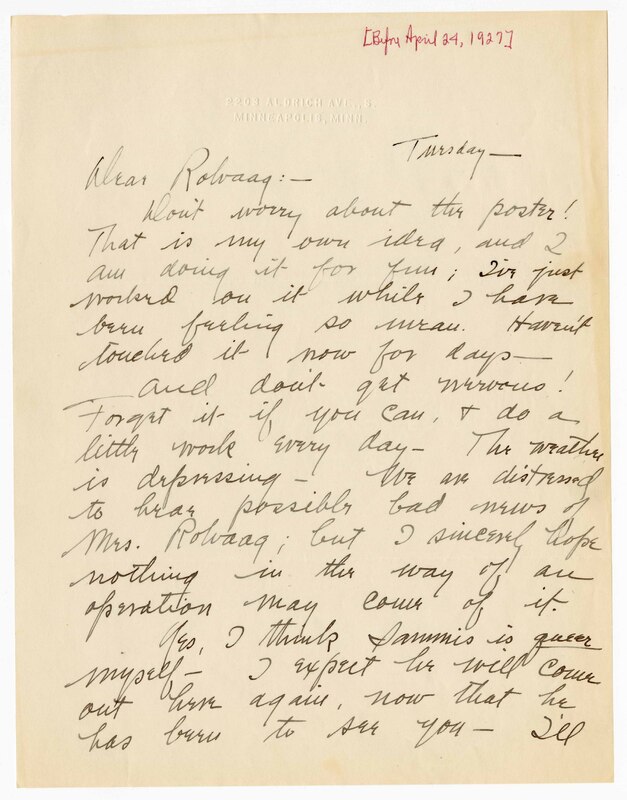 [Before April 24, 1927]
2203 ALDRICH AVE., S.
MINNEAPOLIS, MINN.
Tuesday—
Dear Rolvaag:—
Don't worry about the poster!
That is my own idea, and I
am doing it for fun; I've just
worked on it while I have
been feeling so mean. Haven't
touched it now for days—
And don't get nervous!
Forget it if you can, & do a
little work every day— The weather
is depressing— We are distressed
to hear possible bad news of
Mrs. Rolvaag; but I sincerely hope
nothing in the way of an
operation may come of it.
Yes, I think Sammis is queer
myself— I expect he will come
out here again, now that he
has been to see you— I'll